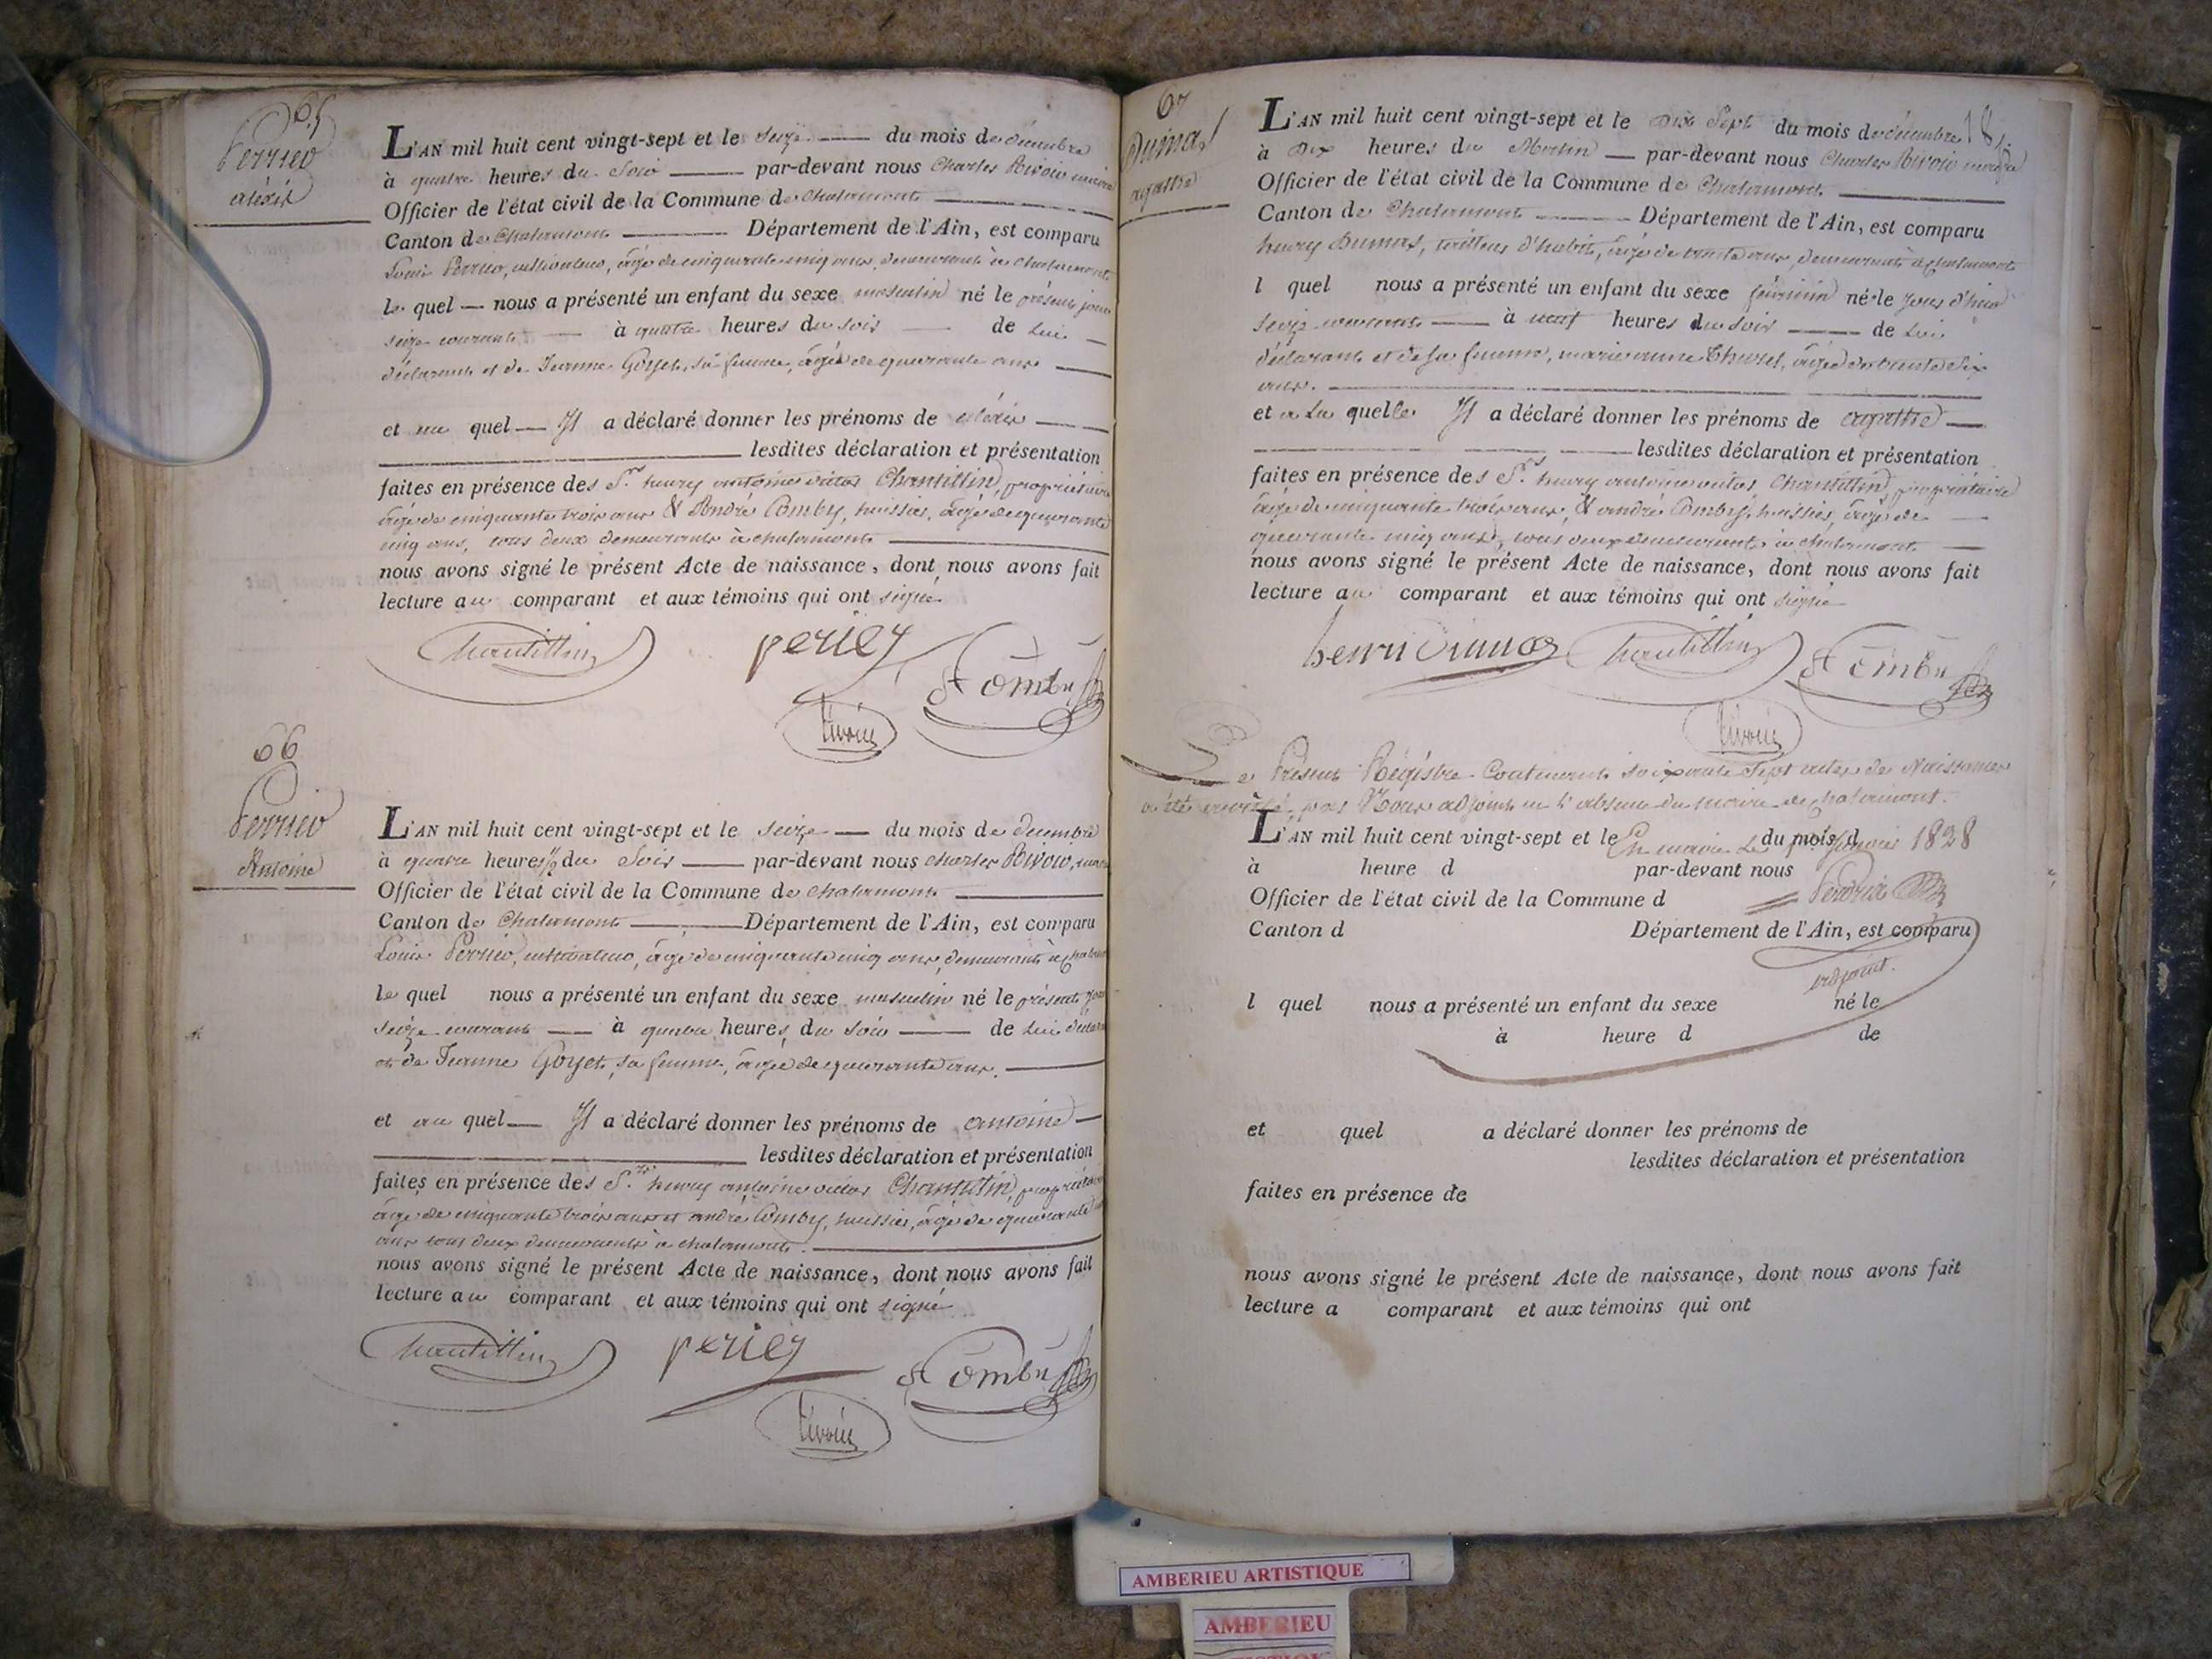 65
Perrier
aléxis
L'AN mil huit cent vingt-sept et le seize du mois de décembre
à quatre heures du soir par-devant nous Charles Rivoire maire
Officier de l'état civil de la Commune de Chalamont
Canton de Chalamont Département de l'Ain, est comparu
Louis Perrier, cultivateur, âgé de cinquante cinq ans, demeurant à Chalamont
le quel nous a présenté un enfant du sexe masculin né le présent jour
seize courant à quatre heures du soir de lui
déclarant et de Jeanne Goyet, sa femme, âgée de quarante ans
et au quel Il a déclaré donner les prénoms de aléxis
lesdites déclaration et présentation
faites en présence des Srs henry antoine victor Chantillin, propriétaire
âgé de cinquante trois ans & André Comby, huissier, âgé de quarante
cinq ans, tous deux demeurants à chalamont
nous avons signé le présent Acte de naissance, dont nous avons fait
lecture au comparant et aux témoins qui ont signé
Chantillin periey A Comby
Rivoire
66
Perrier
Antoine
L'AN mil huit cent vingt-sept et le seize du mois de décembre
à quatre heures 1/2 du soir par-devant nous Charles Rivoire, maire
Officier de l'état civil de la Commune de chalamont
Canton de Chalamont Département de l'Ain, est comparu
Louis Perrier, cultivateur, âgé de cinquante cinq ans, demeurant à Chalamont
le quel nous a présenté un enfant du sexe masculin né le présent jour
seize courant à quatre heures du soir de lui déclarant
et de Jeanne Goyet, sa femme, âgée de quarante ans.
et au quel Il a déclaré donner les prénoms de antoine
lesdites déclaration et présentation
faites en présence des Srs henry antoine victor Chantillin, propriétaire
âgé de cinquante trois ans et andré Comby, huissier, âgé de quarante
ans tous deux demeurants à chalamont.
nous avons signé le présent Acte de naissance, dont nous avons fait
lecture au comparant et aux témoins qui ont signé
Chantillin periey A Comby
Rivoire
67
Dumas
agathe
L'AN mil huit cent vingt-sept et le dix sept du mois de décembre 18
à Dix heures du Matin par-devant nous Charles Rivoire maire
Officier de l'état civil de la Commune de Chalamont
Canton de Chalamont Département de l'Ain, est comparu
henry Dumas, tailleur d'habit, âgé de trente ans, demeurant à chalamont
l quel nous a présenté un enfant du sexe féminin né le jour d'hier
seize courant à neuf heures du soir de lui
déclarant et de sa femme, marie anne Thuret, âgée de trente six
ans.
et a la quelle Il a déclaré donner les prénoms de agathe
lesdites déclaration et présentation
faites en présence des Srs henry antoine victor Chantillin, propriétaire
âgé de cinquante trois ans, & andré Comby, huissier, âgé de
quarante cinq ans, tous deux demeurants à chalamont
nous avons signé le présent Acte de naissance, dont nous avons fait
lecture au comparant et aux témoins qui ont signé
henri Dumas Chantillin A Comby
Rivoire
Le Présent Régistre Contenant soixante sept actes de Naissances
a été arrêté, par Nous adjoint en l'absence du maire de chalamont.
L'AN mil huit cent vingt-sept et le du mois d
En mairie le janvier 1828
à heure d par-devant nous
Officier de l'état civil de la Commune d
Perdrix
Canton d Département de l'Ain, est comparu
adjoint.
l quel nous a présenté un enfant du sexe né le
à heure d de
et quel a déclaré donner les prénoms de
lesdites déclaration et présentation
faites en présence de
nous avons signé le présent Acte de naissance, dont nous avons fait
lecture a comparant et aux témoins qui ont
AMBERIEU ARTISTIQUE
AMBERIEU